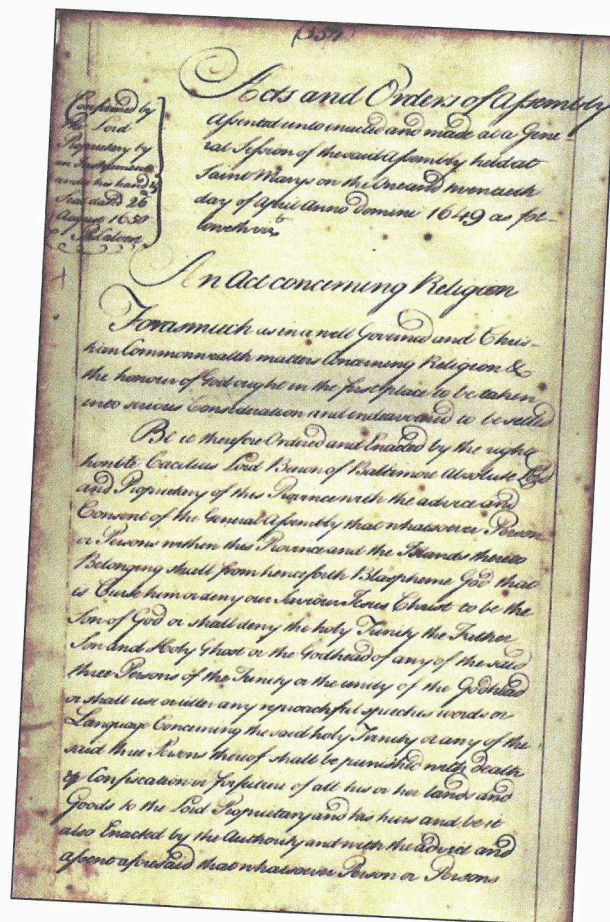 Acts and Orders of Assembly
assented unto enacted and made at a Gene-
ral Session of the said Assembly held at
Saint Marys on the one and twentieth
day of April Anno domini 1649 as fol-
loweth vizt
Confirmed by
the Lord
Proprietary by
an Instrument
under his hand &
Seal dated 26
August 1650
An Act concerning Religion
Forasmuch as in a well Governed and Chris-
tian Commonwealth matters Concerning Religion &
the honour of God ought in the first place to be taken
into serious Consideration and endeavoured to be settled
Be it therefore Ordered and Enacted by the right
honble Cæcilius Lord Baron of Baltemore absolute Lord
and Proprietary of this Province with the advice and
Consent of the General Assembly that whatsoever Person
or Persons within this Province and the Islands thereto
Belonging shall from henceforth Blaspheme God that
is Curse him or deny our Saviour Jesus Christ to be the
Son of God or shall deny the holy Trinity the Father
Son and Holy Ghost or the Godhead of any of the said
three Persons of the Trinity or the unity of the Godhead
or shall use or utter any reproachful speeches words or
Language Concerning the said holy Trinity or any of the
said three Persons thereof shall be punished with death
& Confiscation or forfeiture of all his or her lands and
Goods to the Lord Proprietary and his heirs and be it
also Enacted by the Authority and with the advice and
assent aforesaid that whatsoever Person or Persons